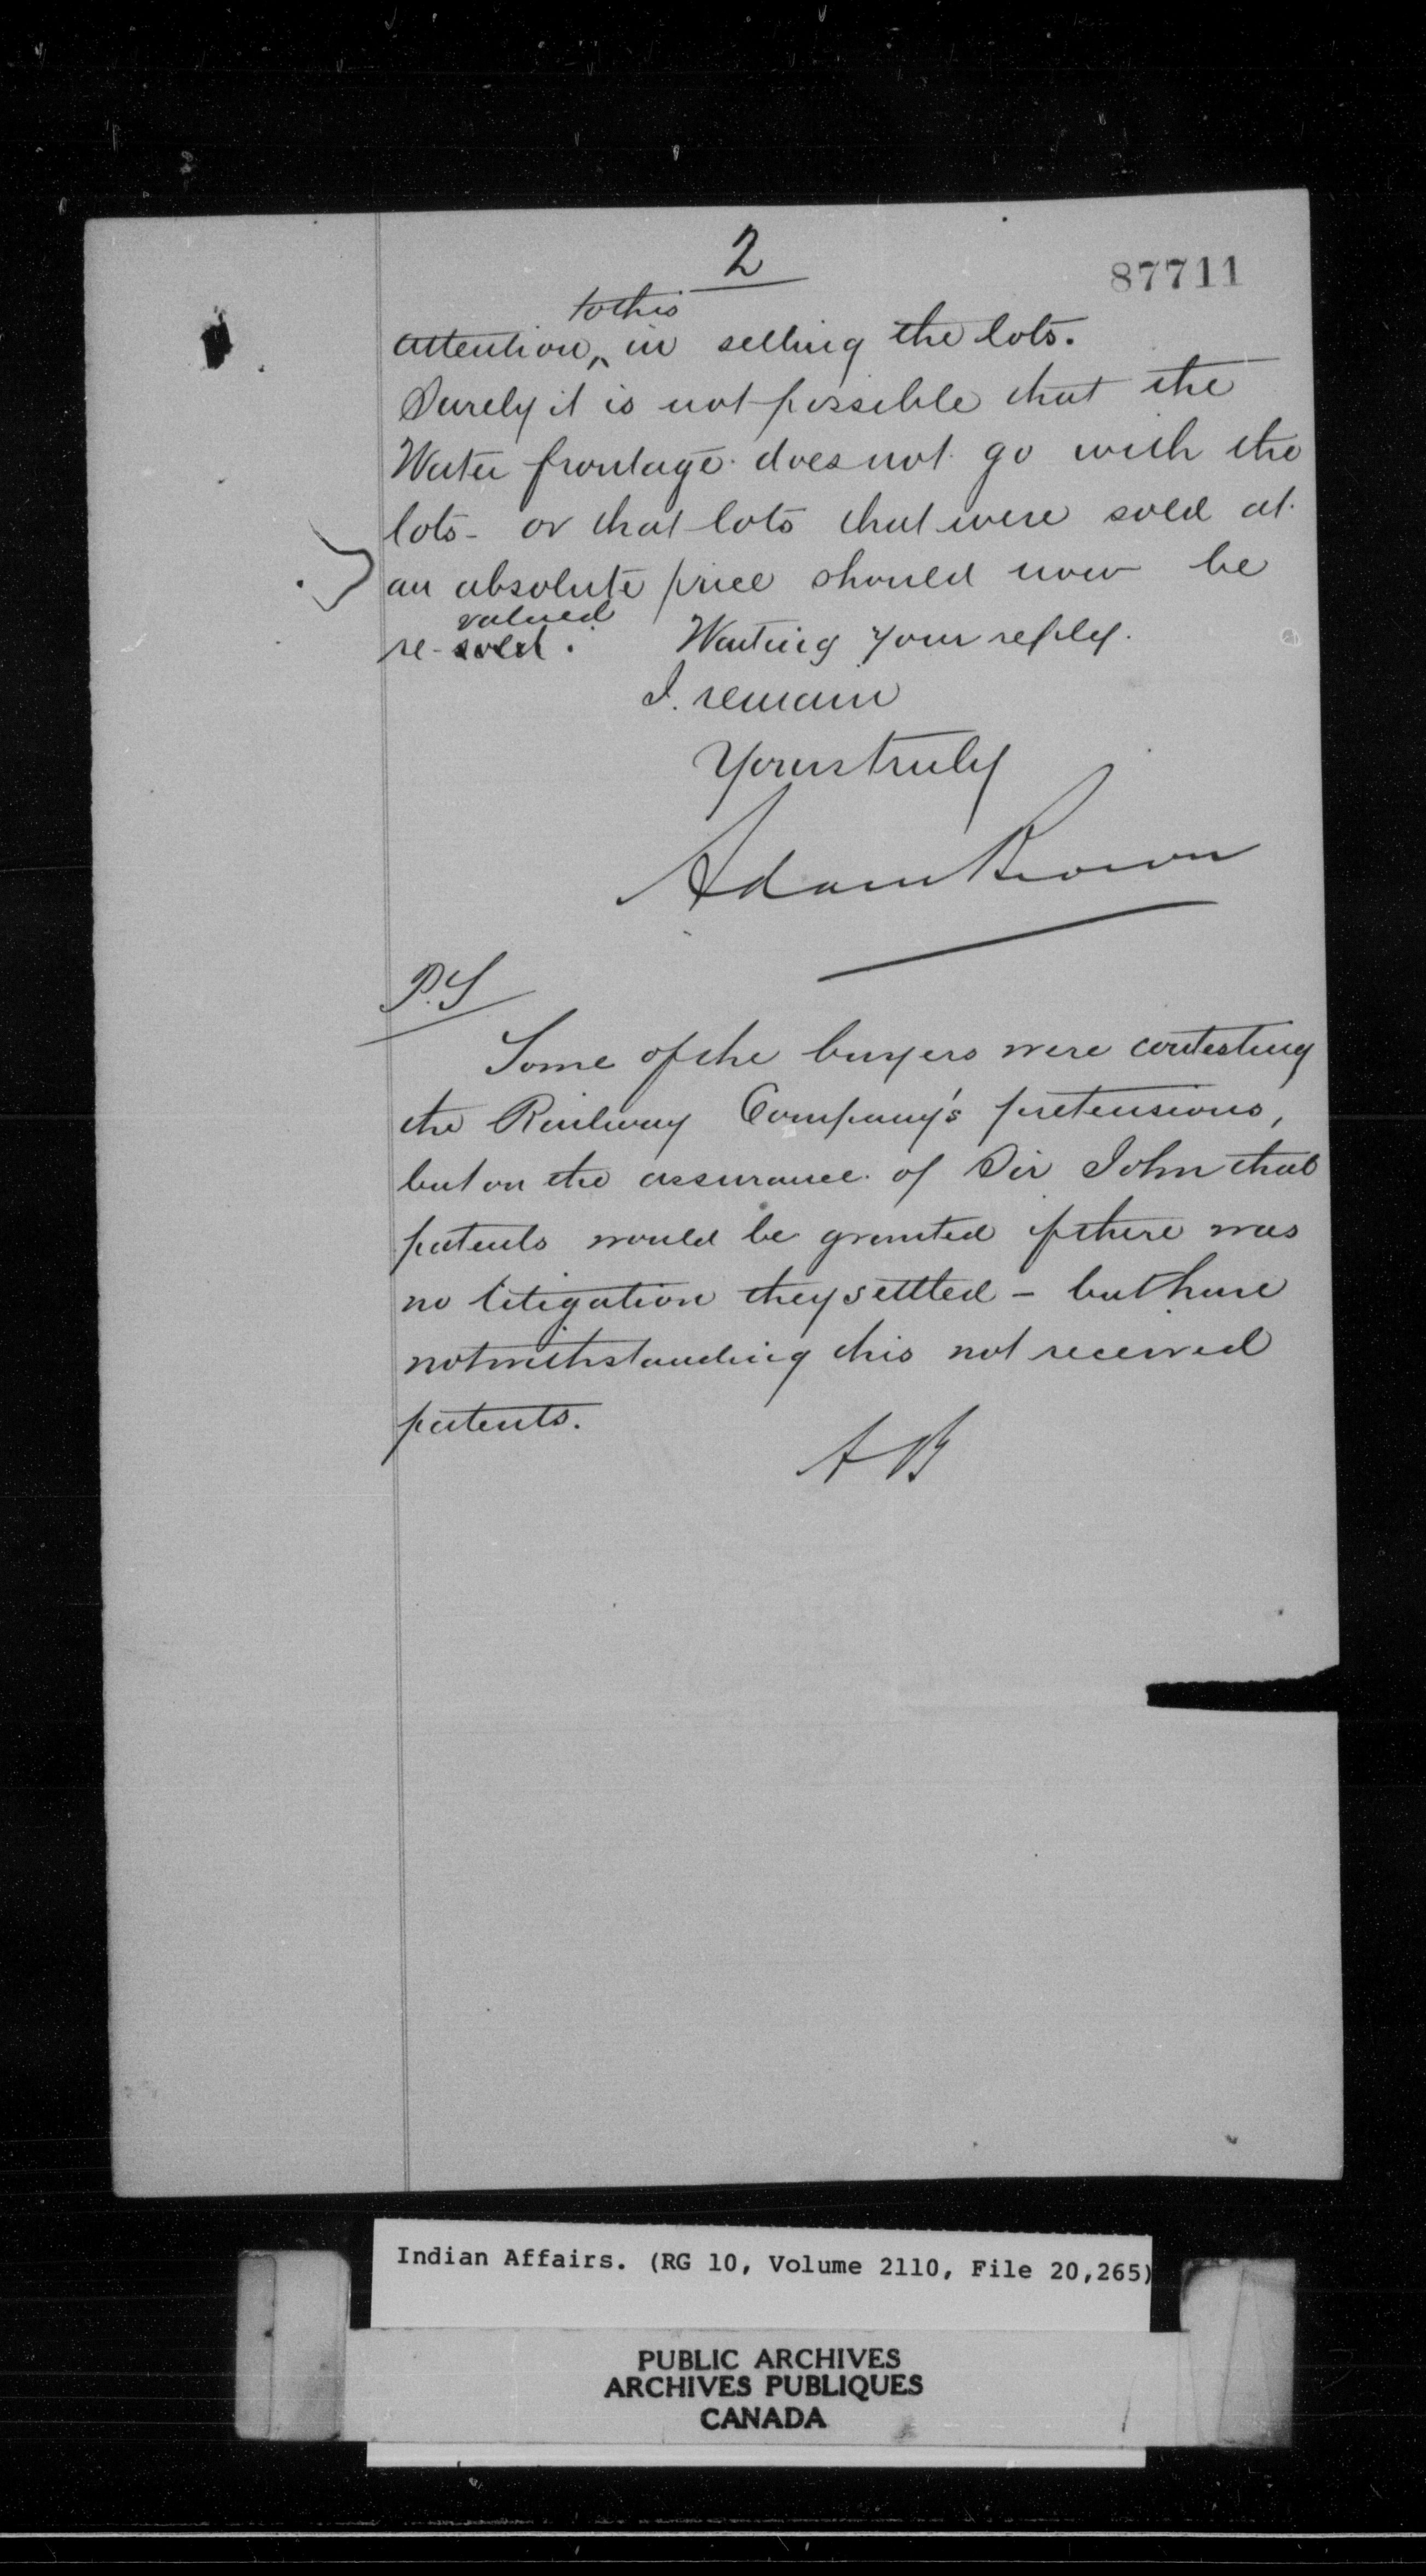 2
87711
to this
attention ^ in selling the lots.
Surely it is not possible that the
Water frontage does not go with the
lots - or that lots that were sold at
an absolute price should now be
valued
re-sold. Waiting your reply.
I remain
Yours truly
Adam Brown
P.S
Some of the buyers were contesting
the Railway Company's pretensions,
but on the assurance of Sir John that
patents would be granted if there was
no litigation they settled - but have
notwithstanding this not received
patents.
AB
Indian Affairs. (RG 10, Volume 2110, File 20,265)
PUBLIC ARCHIVES
ARCHIVES PUBLIQUES
CANADA